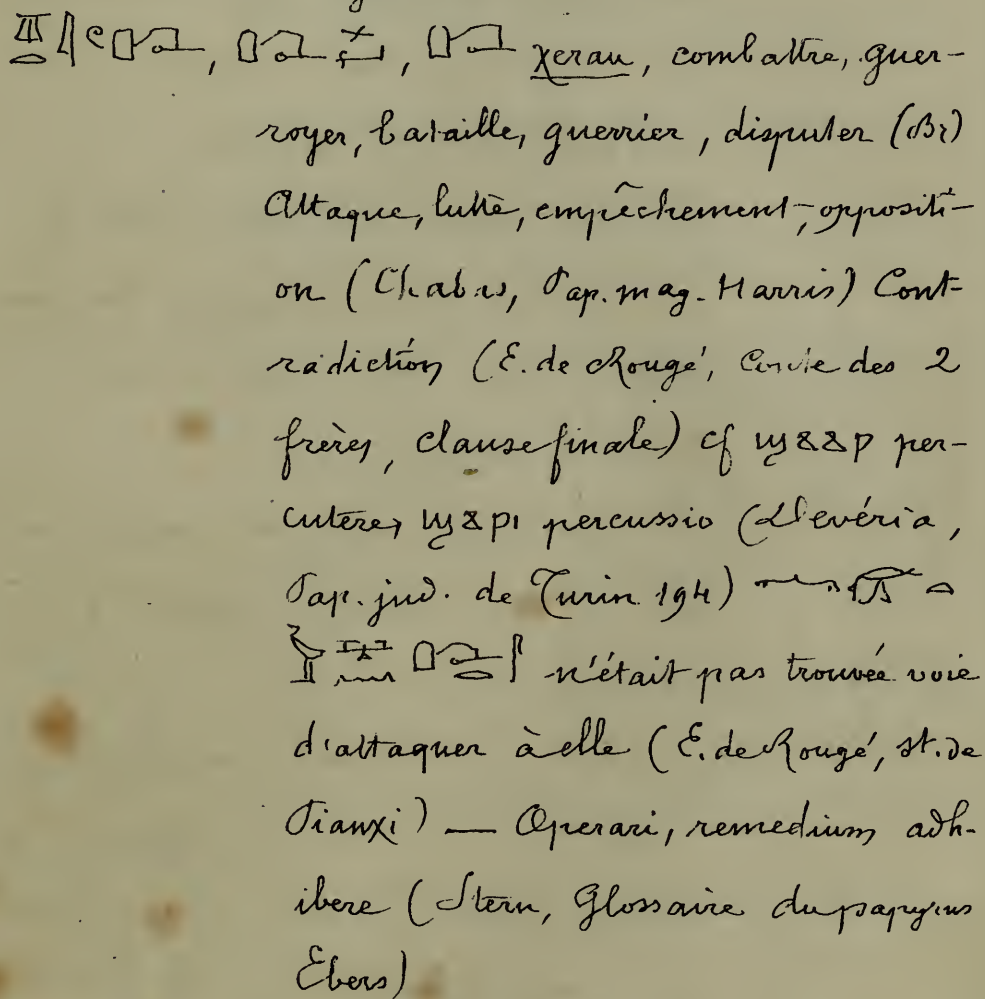 χerau, combattre, guer-
royer, bataille, guerrier, disputer (Br)
Attaque, lutte, empêchement, oppositi-
on (Chabas, Pap. mag. Harris) Cont-
radiction (E. de Rougé, Conte des 2
frères, clause finale) cf ϣⲁⲁⲣ per-
cutere, ϣⲁⲣⲓ percussio (Devéria,
Pap. jud. de Turin 194)
n'était pas trouvée voie
d'attaquer à elle (E. de Rougé, st. de
Pianχi) — Operari, remedium adh-
ibere (Stern, Glossaire du papyrus
Ebers)